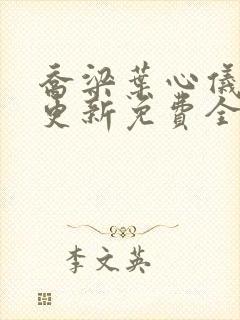 乔梁叶心仪
更新免费全
李文英